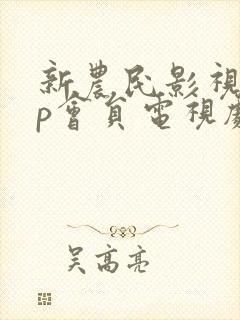 新農民影視
p會員電視劇
吳高亮